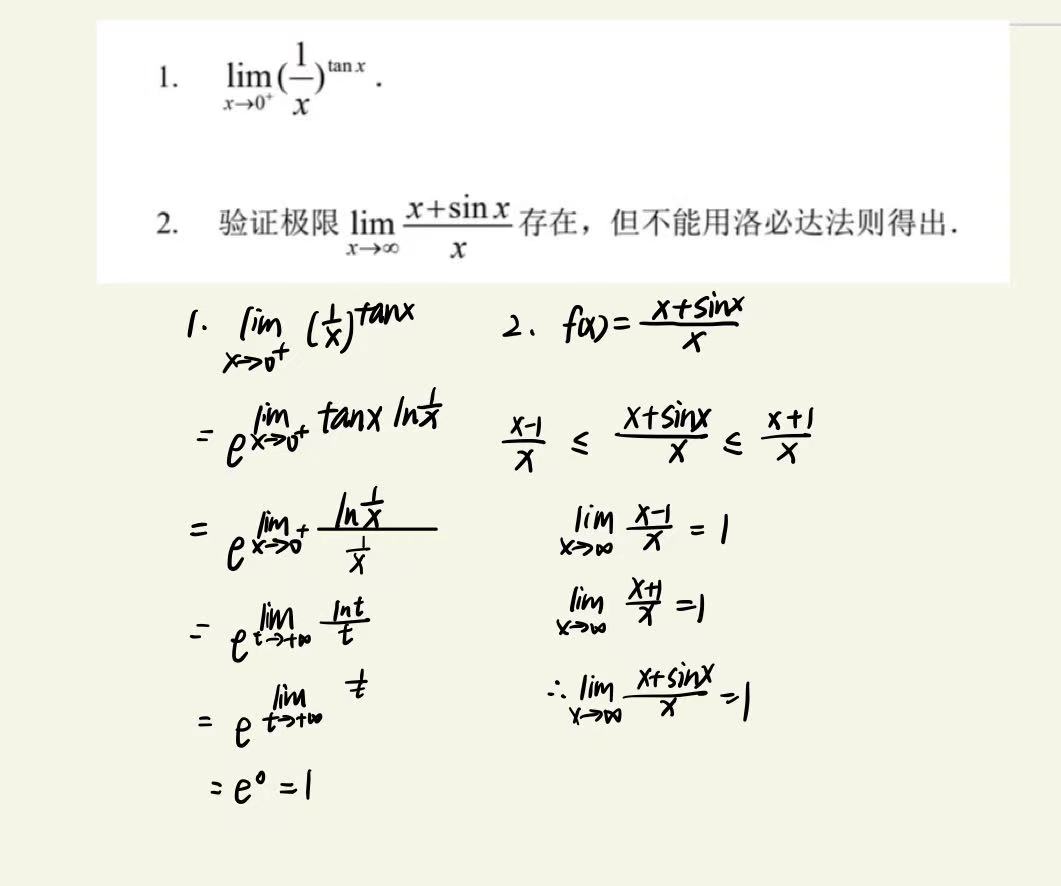 1. lim_{x→0⁺} (1/x)^{tan x} .
2. 验证极限 lim_{x→∞} (x+sin x)/x 存在，但不能用洛必达法则得出.
1. lim_{x→0⁺} (1/x)^{tanx}
= e^{lim_{x→0⁺} tanx ln 1/x}
= e^{lim_{x→0⁺} (ln 1/x)/(1/x)}
= e^{lim_{t→+∞} lnt/t}
= e^{lim_{t→+∞} 1/t}
= e⁰ = 1
2. f(x) = (x+sinx)/x
(x-1)/x ≤ (x+sinx)/x ≤ (x+1)/x
lim_{x→∞} (x-1)/x = 1
lim_{x→∞} (x+1)/x = 1
∴ lim_{x→∞} (x+sinx)/x = 1